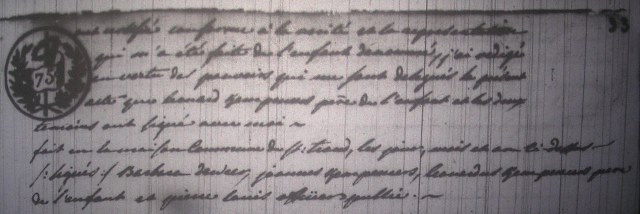 ont certifié conforme à la vérité et la représentation
qui m'a été fait de l'enfant denommé, j'ai rédigé
en vertu des pouvoirs qui me sont delegués le présent
acte que Lenard père de l'enfant et les deux
temoins ont signé avec moi
fait en la maison Commune de St. trond, les jour, mois et an ci dessus
/: signés :/ joannes Leonardus père
de l'enfant et pierre louis officier public.
75
33